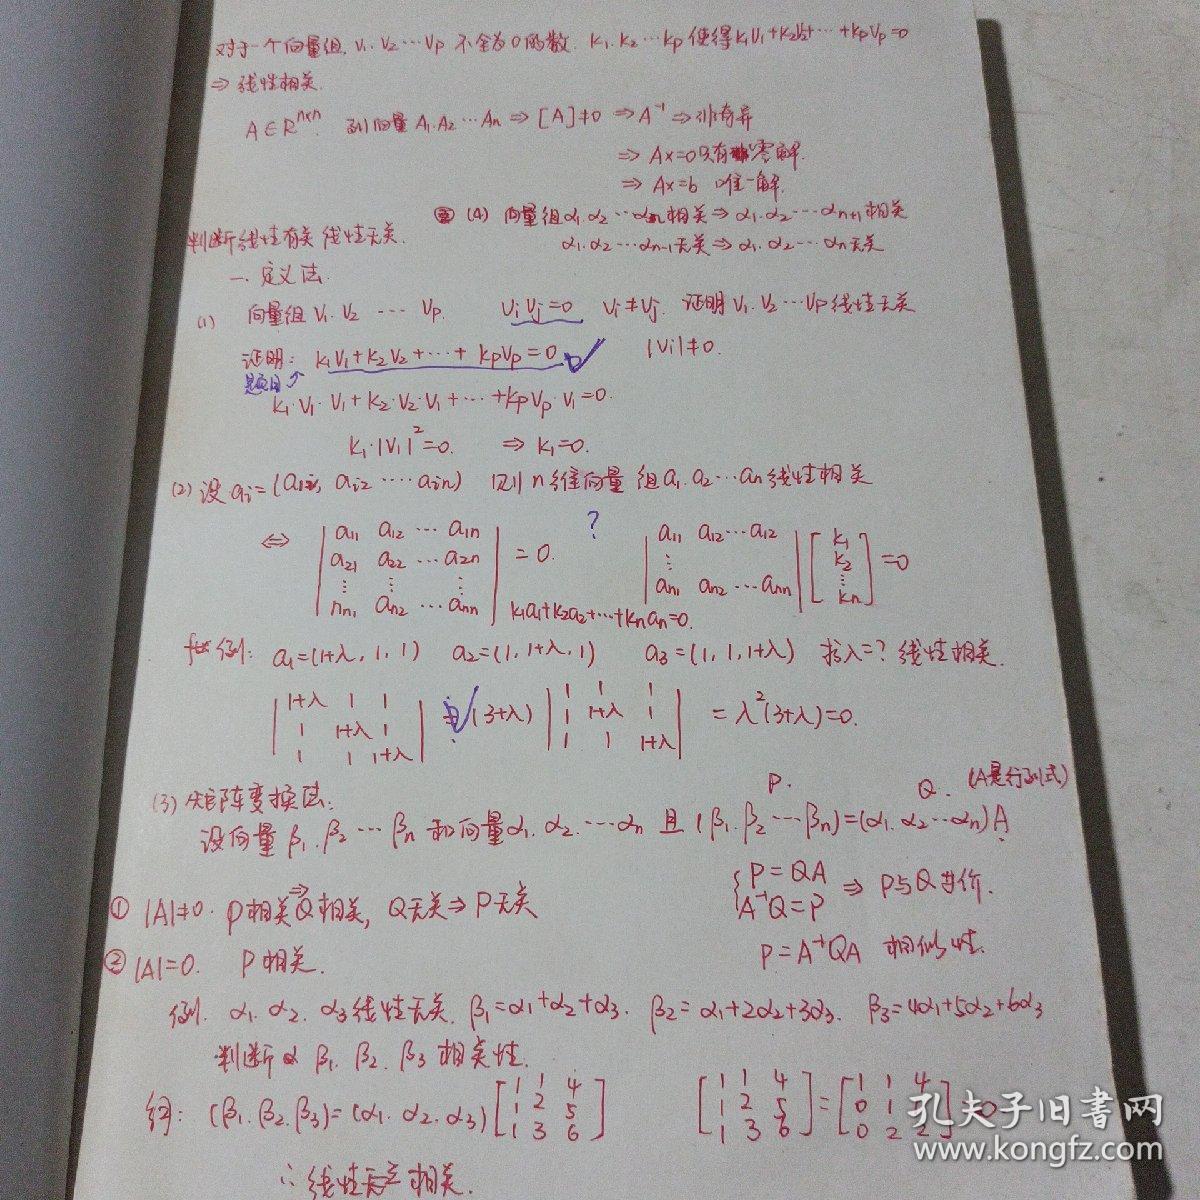 对于一个向量组, V₁ V₂ … Vp 不全为0的数. k₁. k₂ … kp 使得k₁V₁+k₂V₂+ … +kpVp=0
⇒ 线性相关.
A∈Rⁿˣⁿ. 列向量 A₁.A₂ … An ⇒ [A]≠0 ⇒ A⁻¹ ⇒ 非奇异
⇒ Ax=0只有零解.
⇒ Ax=b 唯一解.
(4) 向量组α₁.α₂ … αn相关⇒ α₁.α₂ … αn+1相关
判断线性有关 线性无关.
α₁.α₂ … αn-1无关⇒ α₁.α₂ … αn无关
一. 定义法.
(1) 向量组 V₁. V₂ … Vp. ViVj=0 Vi≠Vj. 证明 V₁. V₂ … Vp线性无关
证明: k₁V₁+k₂V₂+…+ kpVp=0 |Vi|≠0.
题目↗
k₁·V₁·V₁+k₂·V₂·V₁+…+kpVp·V₁=0.
k₁·|V₁|²=0. ⇒ k₁=0.
(2) 设ai=(ai1, ai2 … ain) 则 n 维向量组a₁.a₂…an线性相关
⇔ | a11 a12 … a1n | ? | a11 a12 … a12 | [ k₁ ]
| a21 a22 … a2n | = 0. | ⋮ | [ k₂ ] =0
| ⋮ ⋮ ⋮ | | an1 an2 … ann | [ ⋮ ]
| nn1 an2 … ann | k₁a₁+k₂a₂+…+knan=0. [ kn ]
例: a₁=(1+λ, 1, 1) a₂=(1, 1+λ, 1) a₃=(1, 1, 1+λ) 求λ=? 线性相关.
| 1+λ 1 1 | | 1 1 1 |
| 1 1+λ 1 | = (3+λ) | 1 1+λ 1 | = λ²(3+λ)=0.
| 1 1 1+λ | | 1 1 1+λ |
(3) 矩阵变换法: P. Q. (A是行列式)
设向量 β₁.β₂ … βn 和向量α₁. α₂. … αn 且 (β₁.β₂ … βn)=(α₁.α₂ … αn)A
{ P=QA
A⁻¹Q=P ⇒ P与Q等价.
① |A|≠0. P相关⇒Q相关, Q无关⇒P无关
P=A⁻¹QA 相似性.
② |A|=0. P相关.
例. α₁. α₂. α₃线性无关. β₁=α₁+α₂+α₃. β₂=α₁+2α₂+3α₃. β₃=4α₁+5α₂+6α₃
判断 β₁. β₂. β₃ 相关性.
解: (β₁.β₂.β₃)=(α₁.α₂.α₃) [ 1 1 4 ] [ 1 1 4 ] = [ 1 1 4 ]
[ 1 2 5 ] [ 1 2 5 ] [ 0 1 ]
[ 1 3 6 ] [ 1 3 6 ] [ 0 2 2 ]
∴ 线性相关.
孔夫子旧书网
www.kongfz.com